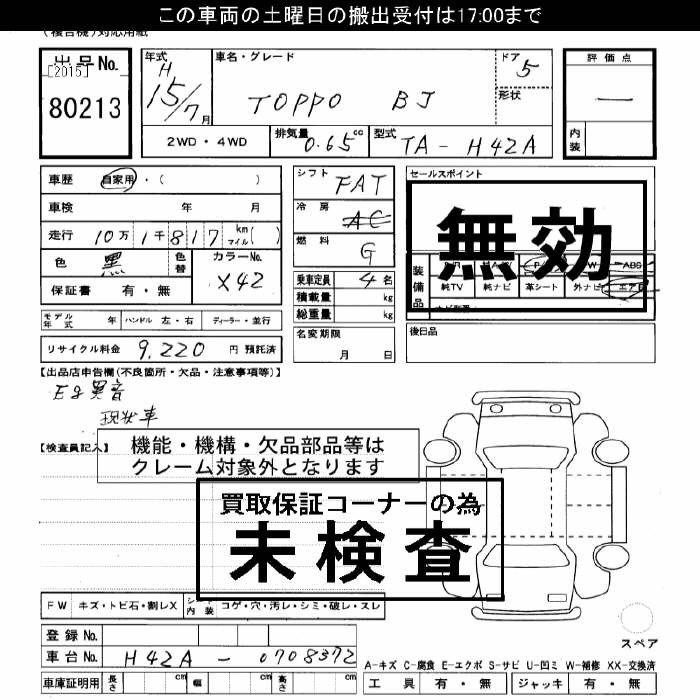 この車両の土曜日の搬出受付は17:00まで
(複合機)対応用紙
出品No.
[2015]
80213
年式
H
15/7月
車名・グレード
TOPPO BJ
ドア
5
形状
評価点
一
内装
2WD・4WD
排気量
0.65cc
型式
TA-H42A
車歴
自家用・( )
車検 年 月
走行 10万1千817 km マイル( )
色 黒
色替
カラーNo.
X42
保証書 有・無
シフト
FAT
冷房
AC
燃料
G
乗車定員 4名
積載量 kg
総重量 kg
セールスポイント
無効
装備品
ABS
純TV 純ナビ 革シート 外ナビ エアB
モデル年式 年 ハンドル 左・右 ディーラー・並行
名変期限
月 日
後日品
リサイクル料金 9,220 円 預託済
【出品店申告欄(不良個所・欠品・注意事項等)】
Eg異音
現状車
【検査員記入】
機能・機構・欠品部品等は
クレーム対象外となります
買取保証コーナーの為
未検査
FW キズ・トビ石・割レX
シート内装 コゲ・穴・汚レ・シミ・破レ・スレ
スペア
登録No.
車台No. H42A-0708372
A-キズ C-腐食 E-エクボ S-サビ U-凹ミ W-補修 XX-交換済
車庫証明用 長さ cm 幅 cm 高さ cm
工具 有・無 ジャッキ 有・無